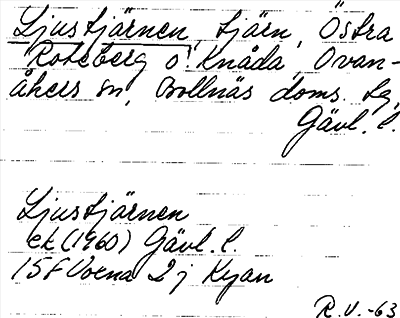 Ljustjärnen, tjärn, Östra
Roteberg o. Knåda, Ovan-
åkers sn, Bollnäs doms. tg,
Gävl. l.
Ljustjärnen
ek (1960) Gävl. l.
15F Voxna 2 j Kyan
R.V. -63